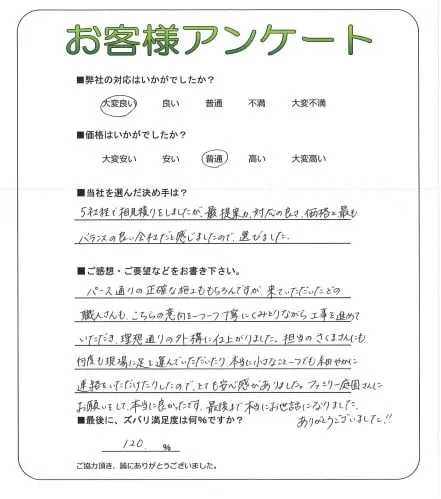 お客様アンケート
■弊社の対応はいかがでしたか？
大変良い 良い 普通 不満 大変不満
■価格はいかがでしたか？
大変安い 安い 普通 高い 大変高い
■当社を選んだ決め手は？
5社程で相見積りをしましたが、最提案力、対応の良さ、価格と最も
バランスの良い会社だと感じましたので、選びました。
■ご感想・ご要望などをお書き下さい。
パース通りの正確な施工ももちろんですが、来ていただいたどの
職人さんも、こちらの意向を一つ一つ丁寧にくみとりながら工事を進めて
いただき、理想通りの外構に仕上がりました。担当のさくまさんにも
何度も現場に足を運んでいただいたり、本当に小さなこと一つでも細やかに
連絡をいただけたりしたので、とても安心感がありました。ファミリー庭園さんに
お願いをして、本当に良かったです。最後まで本当にお世話になりました。
ありがとうございました!!
■最後に、ズバリ満足度は何%ですか？
120. %
ご協力頂き、誠にありがとうございました。